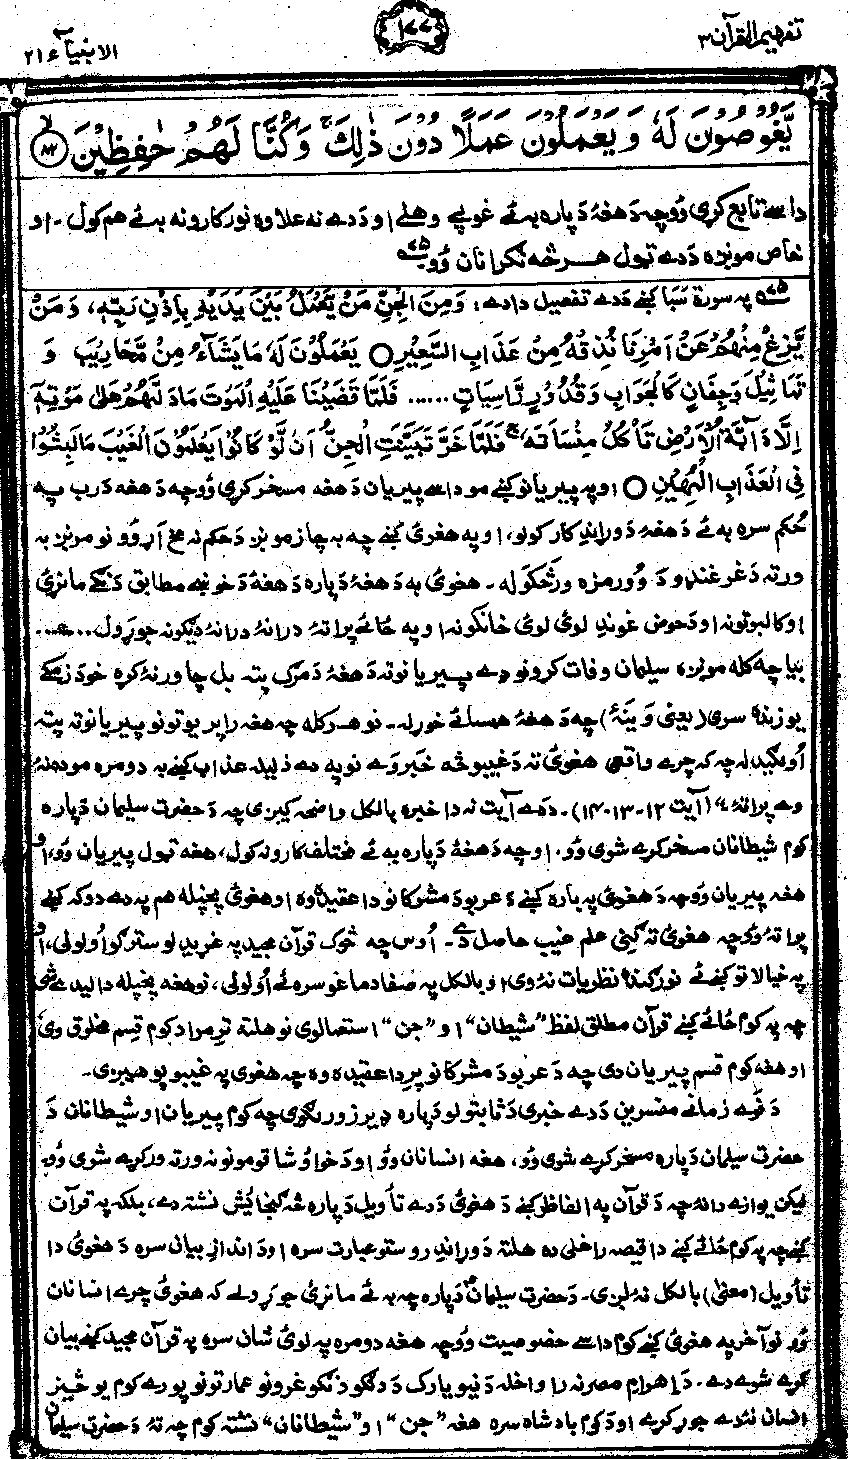 تفهیم القرآن ۳
۱۷۷
الانبیآء ۲۱
يَّغُوْصُوْنَ لَهٗ وَيَعْمَلُوْنَ عَمَلًا دُوْنَ ذٰلِكَ ۚ وَكُنَّا لَهُمْ حٰفِظِيْنَ ۙ ﴿۸۲﴾
داسے تابع کړی وُو چه دَ هغهٔ دَپاره به ئے غوپے وهلے او دَ دے نه علاوه نور کارونه به ئے هم کول ـ او
خاص مونږه دَ دے ټولو هر څه نګرانان وُو ـ ۷۵
۷۵ په سورة سَبَا کښے دَ دے تفصیل دا دے: وَمِنَ الْجِنِّ مَنْ يَّعْمَلُ بَيْنَ يَدَيْهِ بِاِذْنِ رَبِّهٖ، وَمَنْ
يَّزِغْ مِنْهُمْ عَنْ اَمْرِنَا نُذِقْهُ مِنْ عَذَابِ السَّعِيْرِ ○ يَعْمَلُوْنَ لَهٗ مَا يَشَآءُ مِنْ مَّحَارِيْبَ وَ
تَمَاثِيْلَ وَجِفَانٍ كَالْجَوَابِ وَقُدُوْرٍ رّٰسِيَاتٍ ...... فَلَمَّا قَضَيْنَا عَلَيْهِ الْمَوْتَ مَا دَلَّهُمْ عَلٰى مَوْتِهٖٓ
اِلَّا دَآبَّةُ الْاَرْضِ تَاْكُلُ مِنْسَاَتَهٗ ۚ فَلَمَّا خَرَّ تَبَيَّنَتِ الْجِنُّ اَنْ لَّوْ كَانُوْا يَعْلَمُوْنَ الْغَيْبَ مَا لَبِثُوْا
فِي الْعَذَابِ الْمُهِيْنِ ○ او په پیریانو کښے مو داسے پیریان دَ هغه مسخر کړی وُو چه دَ هغه دَ رب په
حُکم سره به ئے دَ هغهٔ دَ وړاندِ کار کولو، او په هغوی کښے چه به چا زمونږ دَ حکم نه مخ اړوُو نو مونږ به
ورته دَ غرغندو دَ وُور مزه ورڅکوله ـ هغوی به دَ هغهٔ دَپاره دَ هغهٔ دَ خوښے مطابق دَنګے ماڼرئ
او کالبوتونه او دَ حوض غوندِ لوئ لوئ خانکونه او په ځائے پراتهٔ درانهٔ درانهٔ دیګونه جوړول ......
بیا چه کله مونږه سیلمان وفات کړو نو دے پیریانو ته دَ هغهٔ دَ مرګ پته بل چا ورنهٔ کړه خو دَ زمکے
یو زنده سری (یعنی وینهٔ) چه دَ هغهٔ همسائے خورله ـ نو هر کله چه هغه راپریوتو نو پیریانو ته پته
اولګیدله چه که چرے واقعی هغوی ته دَ غیبو څه خبر وے نو په دے ذلیله عذاب کښے به دومره موده نهٔ
وے پراتهٔ" (آیت ۱۲-۱۳-۱۴) ـ دَ دے آیت نه دا خبره بالکل واضحه کیږی چه دَ حضرت سیلمان دَپاره
کوم شیطانان مسخر کړے شوی وُو. او چه دَ هغهٔ دَپاره به ئے مختلف کارونه کول، هغه ټول پیریان وُو، او
هغه پیریان وُو چه دَ هغوی په باره کښے دَ عربو دَ مشرکانو دا عقیده وه او هغوی پخپله هم په دے دوکه کښے
پراته وُو چه هغوی ته ګنی علم غیب حاصل دے ـ اوس چه څوک قرآن مجید په غړیدلو سترګو اولولی، او
په خیالاتو کښے ئے نور ګنده نظریات نهٔ وی او بالکل په صفا دماغو سره ئے اولولی، نو هغه پخپله دا لیدے شی
چه په کوم ځائے کښے قرآن مطلق لفظ "شیطان" او "جن" استعمالوی نو هلته ترِ مراد کوم قسم مخلوق وی
او هغه کوم قسم پیریان دی چه دَ عربو دَ مشرکانو پرِ دا عقیده وه چه هغوی په غیبو پوهیږی ـ
دَ نوے زمانے مفسرین دَ دے خبرے دَ ثابتولو دَپاره ډیر زور لګوی چه کوم پیریان او شیطانان دَ
حضرت سیلمان دَپاره مسخر کړے شوی وُو، هغه انسانان وُو او دَ خوا او شا قومونو نه ورته ورکړے شوی وُو
لیکن یوازے دا نهٔ چه دَ قرآن په الفاظو کښے دَ هغوی دَ دے تأویل دَپاره څه ګنجائش نشته دے، بلکه په قرآن
کښے چه په کوم ځائے کښے دا قیصه راغلی ده هلته دَ وړاندِ روستو عبارت سره او دَ اندازِ بیان سره دَ هغوی دا
تأویل (معنیٰ) بالکل نهٔ لږی ـ دَ حضرت سیلمانؑ دَپاره چه به ئے ماڼرئ جوړولے که هغوی چرے انسانان
وُو نو آخر په هغوی کښے کوم داسے خصوصیت وُو چه هغه دومره په لوئ شان سره په قرآن مجید کښے بیان
کړے شوے دے ـ دَ اهرامِ مصر نه را واخله دَ نیویارک دَ دنګو دنګو غرونو عمارتونو پورے کوم یو څیز
انسان نهٔ دے جوړ کړے او دَ کوم بادشاه سره هغه "جن" او "شیطانان" نشته کوم چه تهٔ دَ حضرت سیلمانؑ